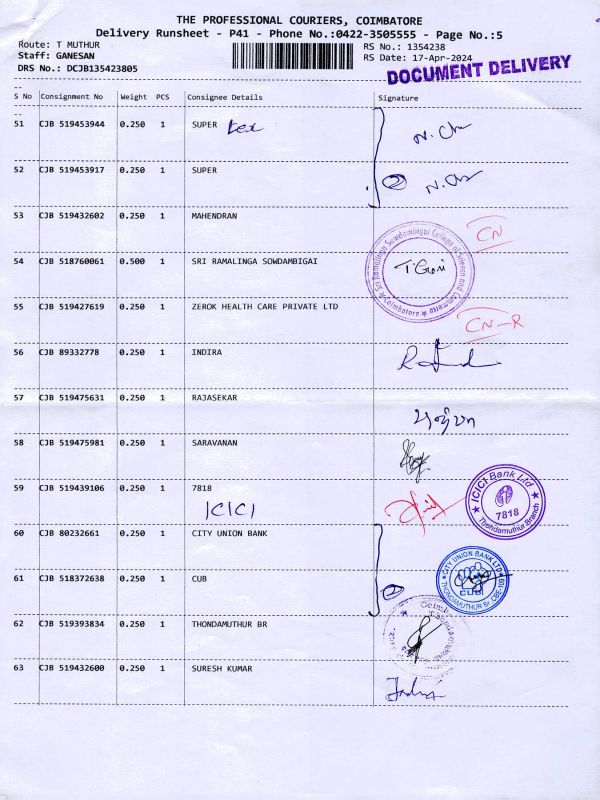 THE PROFESSIONAL COURIERS, COIMBATORE
Delivery Runsheet - P41 - Phone No.:0422-3505555 - Page No.:5
Route: T MUTHUR RS No.: 1354238
Staff: GANESAN RS Date: 17-Apr-2024
DRS No.: DCJB135423805 DOCUMENT DELIVERY
S No Consignment No Weight PCS Consignee Details Signature
51 CJB 519453944 0.250 1 SUPER tex
52 CJB 519453917 0.250 1 SUPER
53 CJB 519432602 0.250 1 MAHENDRAN CN
54 CJB 518760061 0.500 1 SRI RAMALINGA SOWDAMBIGAI
Sri Ramalinga Sowdambigai College of Science and Commerce
Coimbatore
55 CJB 519427619 0.250 1 ZEROK HEALTH CARE PRIVATE LTD
CN-R
56 CJB 89332778 0.250 1 INDIRA
57 CJB 519475631 0.250 1 RAJASEKAR
58 CJB 519475981 0.250 1 SARAVANAN
59 CJB 519439106 0.250 1 7818
ICICI
ICICI Bank Ltd
7818
Thondamuthur.Branch
60 CJB 80232661 0.250 1 CITY UNION BANK
61 CJB 518372638 0.250 1 CUB
CITY UNION BANK LTD
CUB
THONDAMUTHUR BR, CBE-109
62 CJB 519393834 0.250 1 THONDAMUTHUR BR
63 CJB 519432600 0.250 1 SURESH KUMAR